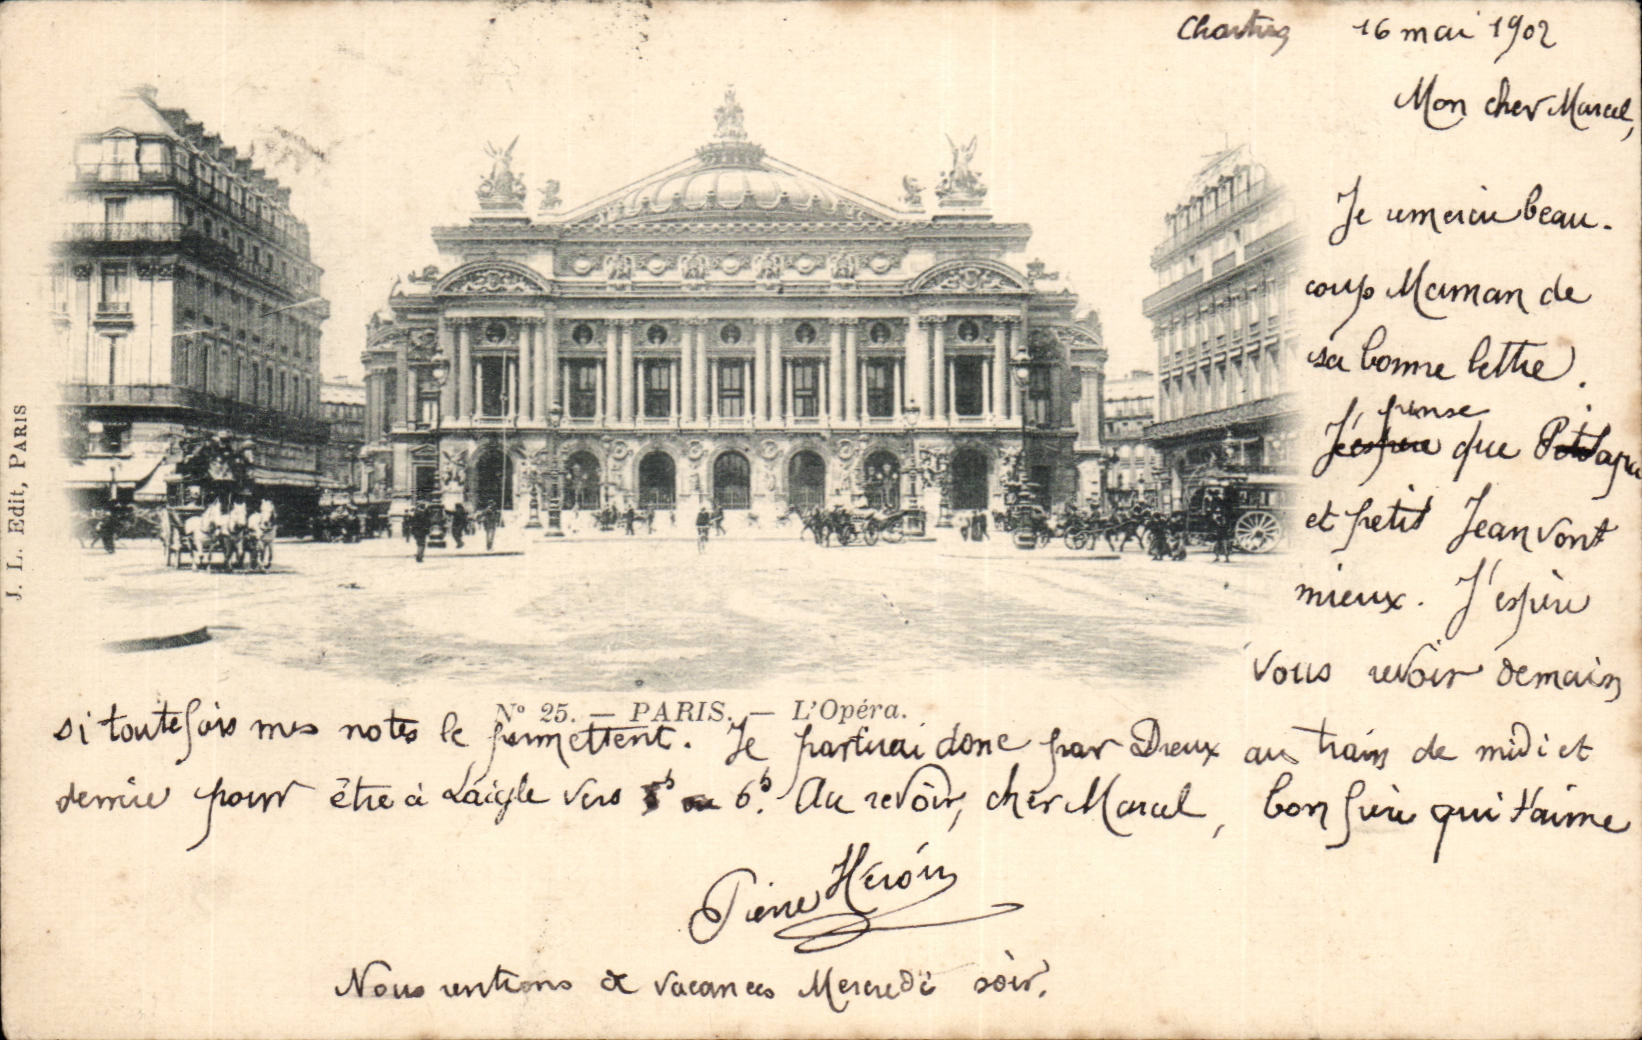 Chartres 16 mai 1902
Mon cher Marcel,
Je remercie beau-
coup Maman de
sa bonne lettre.
pense
J'espère que
et petit Jean vont
mieux. J'espère
vous revoir demain
J. L. Edit, PARIS
N° 25. — PARIS. — L'Opéra.
si toutefois mes notes le permettent. Je partirai donc par Dreux au train de midi et
demie pour être à Laigle vers 5h ou 6h. Au revoir, cher Marcel, bon frère qui t'aime
Pierre Héroin
Nous rentrons de vacances Mercredi soir.